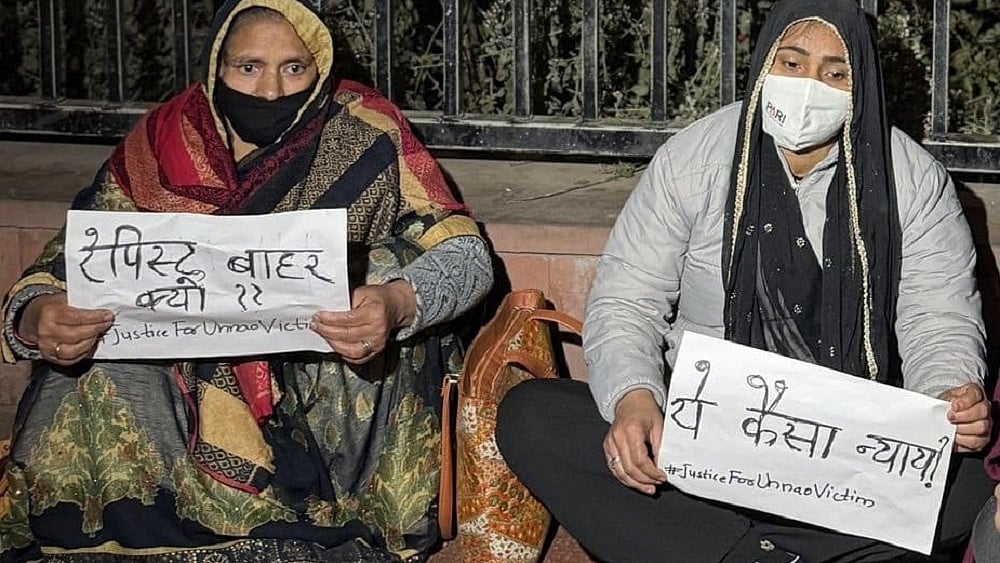 रेपिस्ट बाहर
क्यों ??
#JusticeForUnnaoVictim
PARI
ये कैसा न्याय!
#JusticeForUnnaoVictim